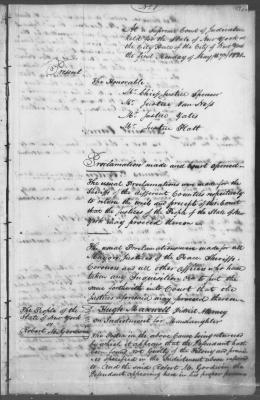 At a Supreme Court of Judicature
held for the State of New York at
the City Hall of the City of New York
the first Monday of May 1820.
Present
The Honorable
Mr. Chief Justice Spencer
Mr. Justice Van Ness
Mr. Justice Yates
Justice Platt
Proclamation made and Court opened.
The usual Proclamations were made for the
Sheriffs of the different Counties respectively
to return the writs and precepts of this Court
that the Justices of the People of the State of New
York may proceed thereon
The usual Proclamations were made for all
Mayors, Justices of the Peace, Sheriffs,
Coroners and all other Officers who have
taken any Inquisition &c to put the
same forthwith into Court that the
Justices aforesaid may proceed thereon
The People of the
State of New York
vs
Robert M. Goodwin
Hugh Maxwell District Attorney
on Indictment for Manslaughter
The Postea in the above Cause being returned
by which it appears that the Defendant hath
been found Not Guilty of the Felony
as charged in the Indictment
And the said Robert M. Goodwin the
Defendant appearing here in his proper person